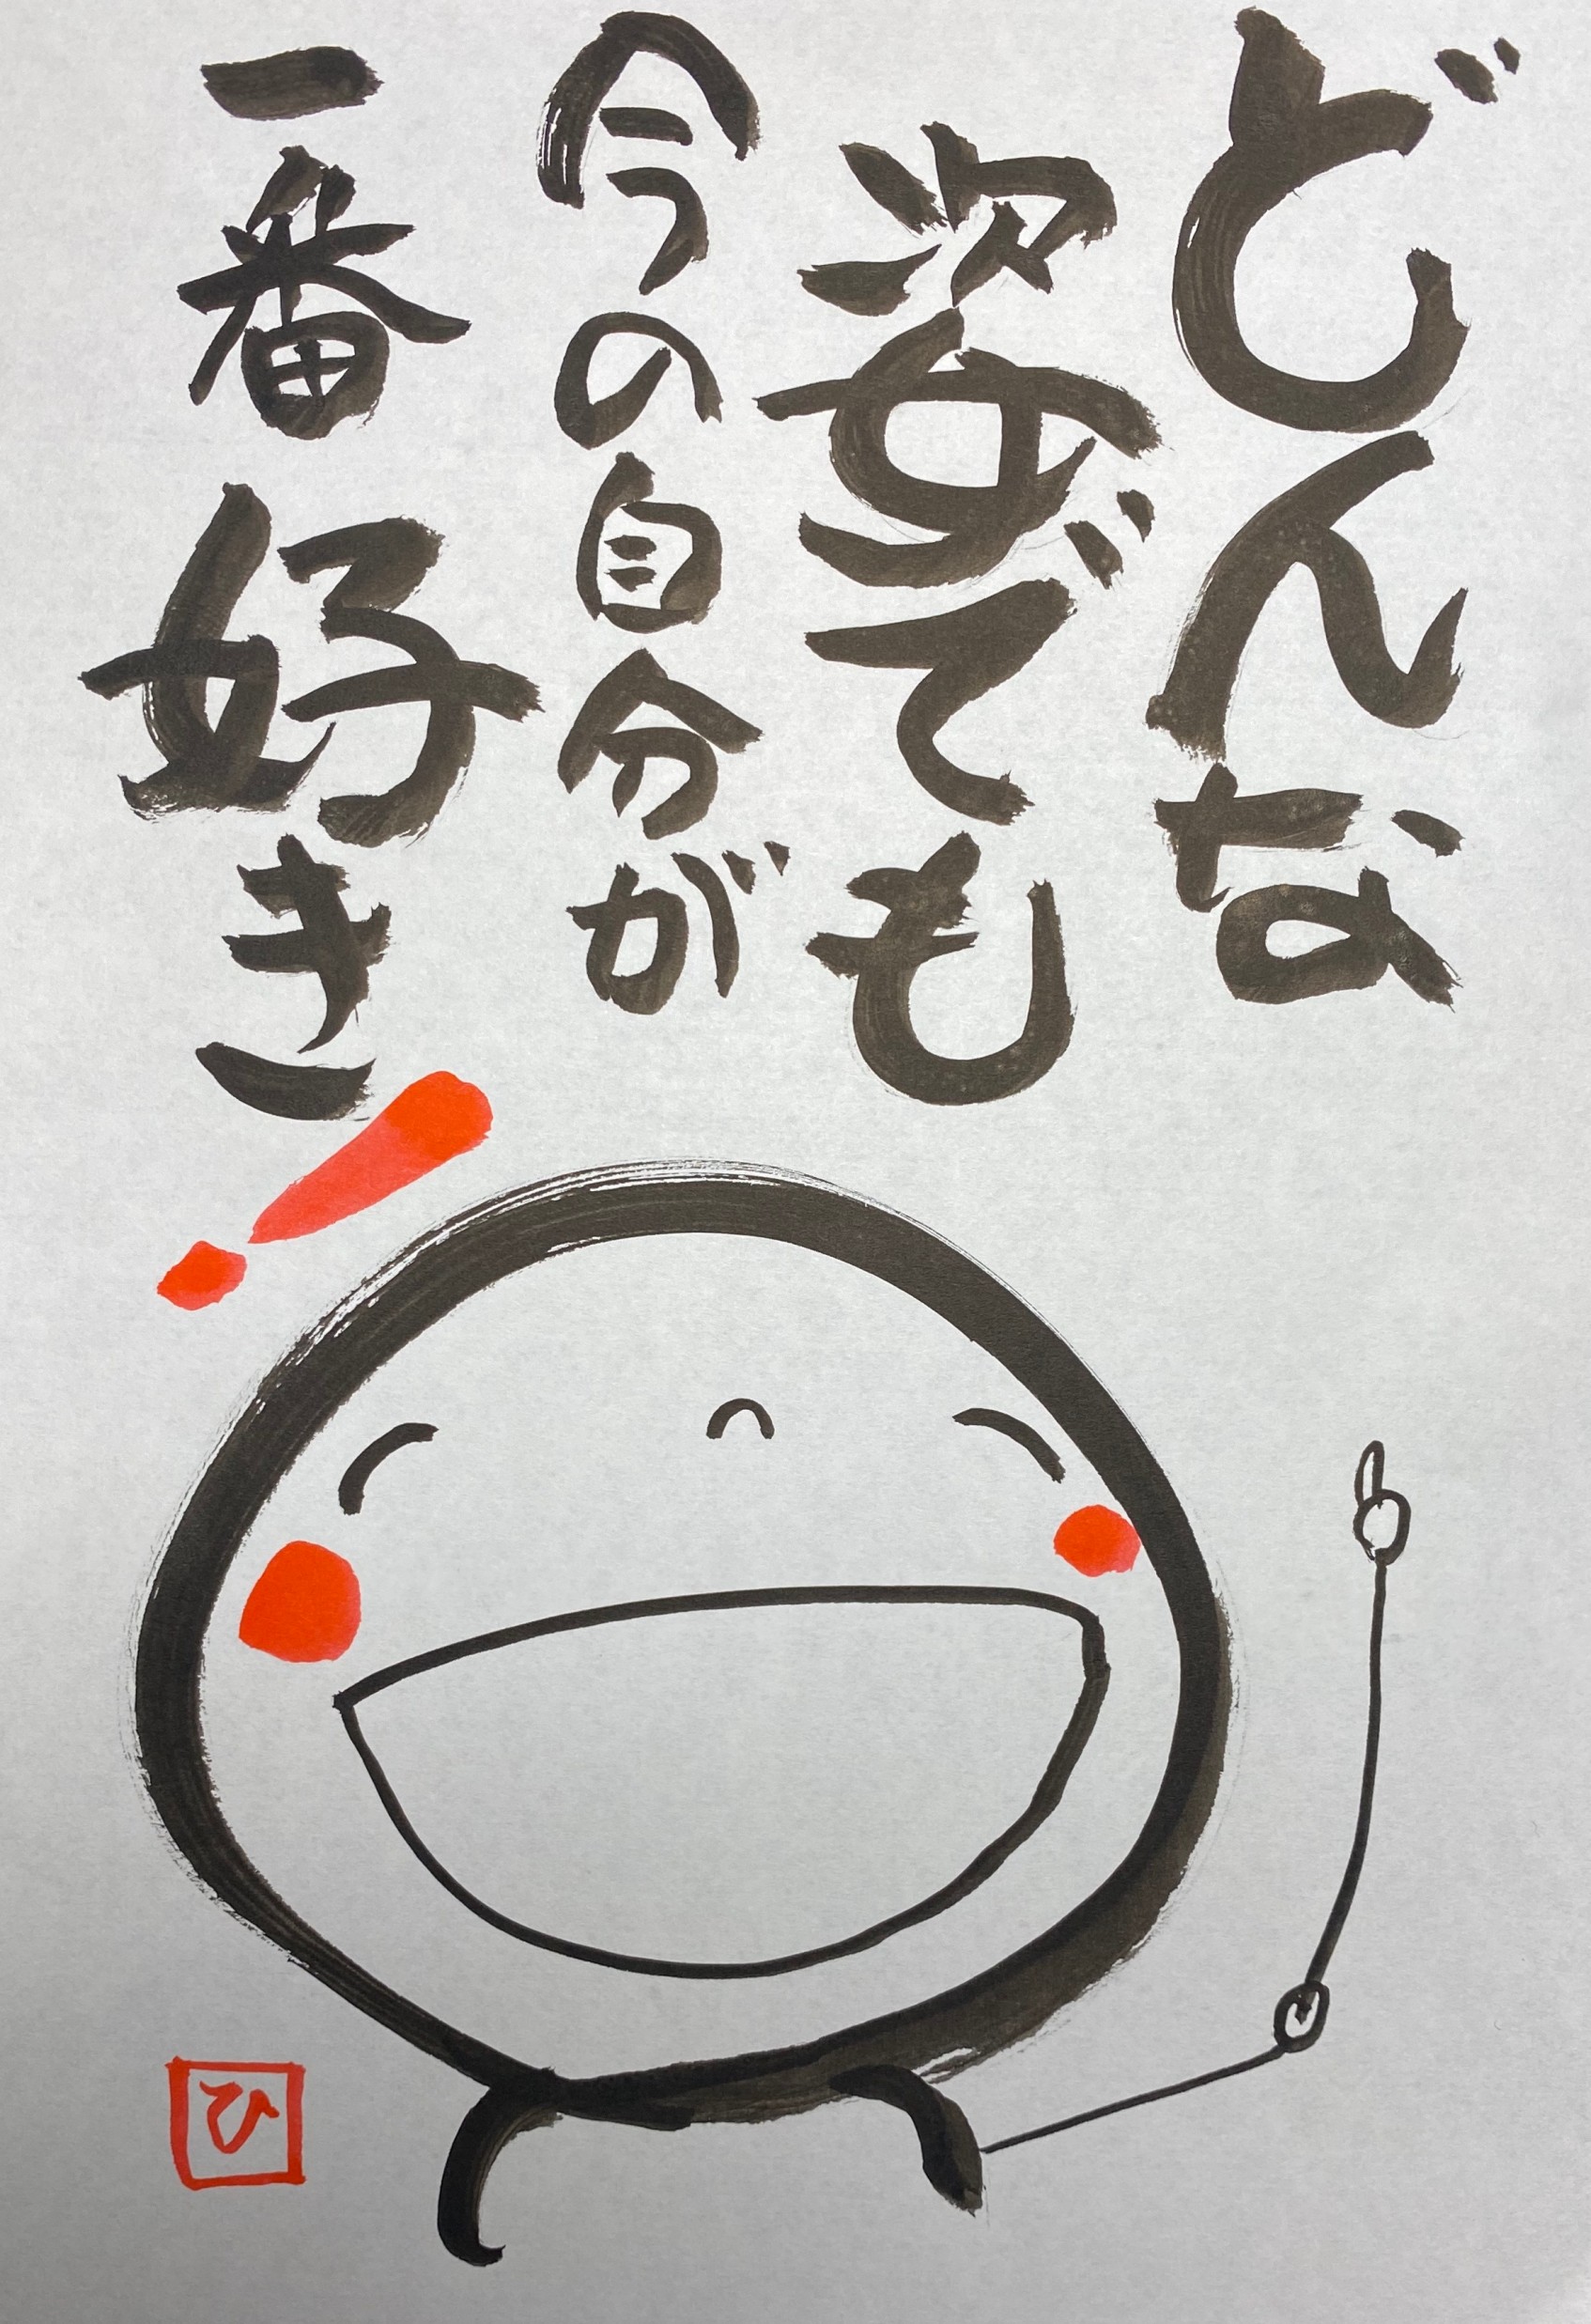 どんな
姿でも
今の自分が
一番好き!
ひ